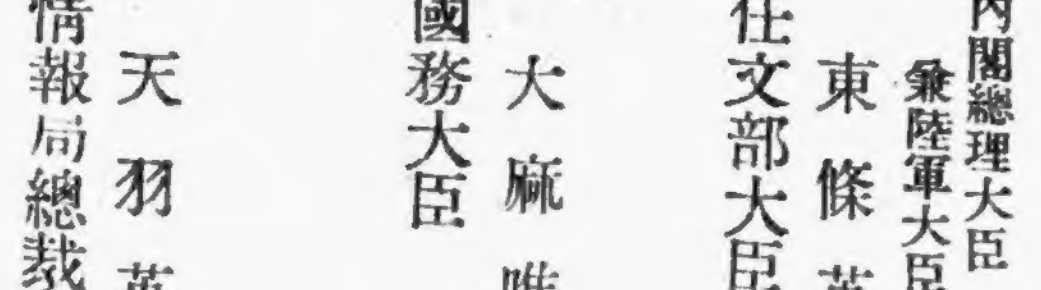 內閣總理大臣
兼陸軍大臣
東條英
任文部大臣
大麻唯
國務大臣
天羽英
情報局總裁